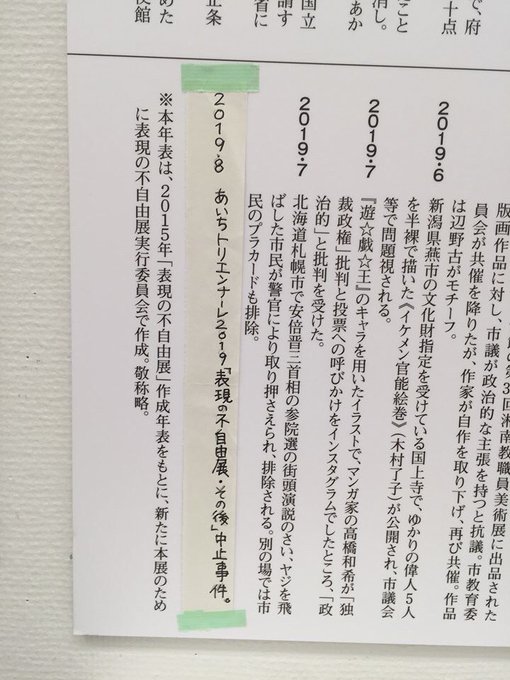 で、府
十点
こと
消し。
あか
国立
請す
省に
止条
めた
版画作品に対し、市議が政治的な主張を持つと抗議。市教育委
員会が共催を降りたが、作家が自作を取り下げ、再び共催。作品
は辺野古がモチーフ。
2019.6
新潟県燕市の文化財指定を受けている国上寺で、ゆかりの偉人5人
を半裸で描いた《イケメン官能絵巻》(木村了子)が公開され、市議会
等で問題視される。
2019.7
『遊☆戯☆王』のキャラを用いたイラストで、マンガ家の高橋和希が「独
裁政権」批判と投票への呼びかけをインスタグラムでしたところ、「政
治的」と批判を受けた。
2019.7
北海道札幌市で安倍晋三首相の参院選の街頭演説のさい、ヤジを飛
ばした市民が警官により取り押さえられ、排除される。別の場では市
民のプラカードも排除。
2019.8 あいちトリエンナーレ2019「表現の不自由展・その後」中止事件。
※本年表は、2015年「表現の不自由展」作成年表をもとに、新たに本展のため
に表現の不自由展実行委員会で作成。敬称略。